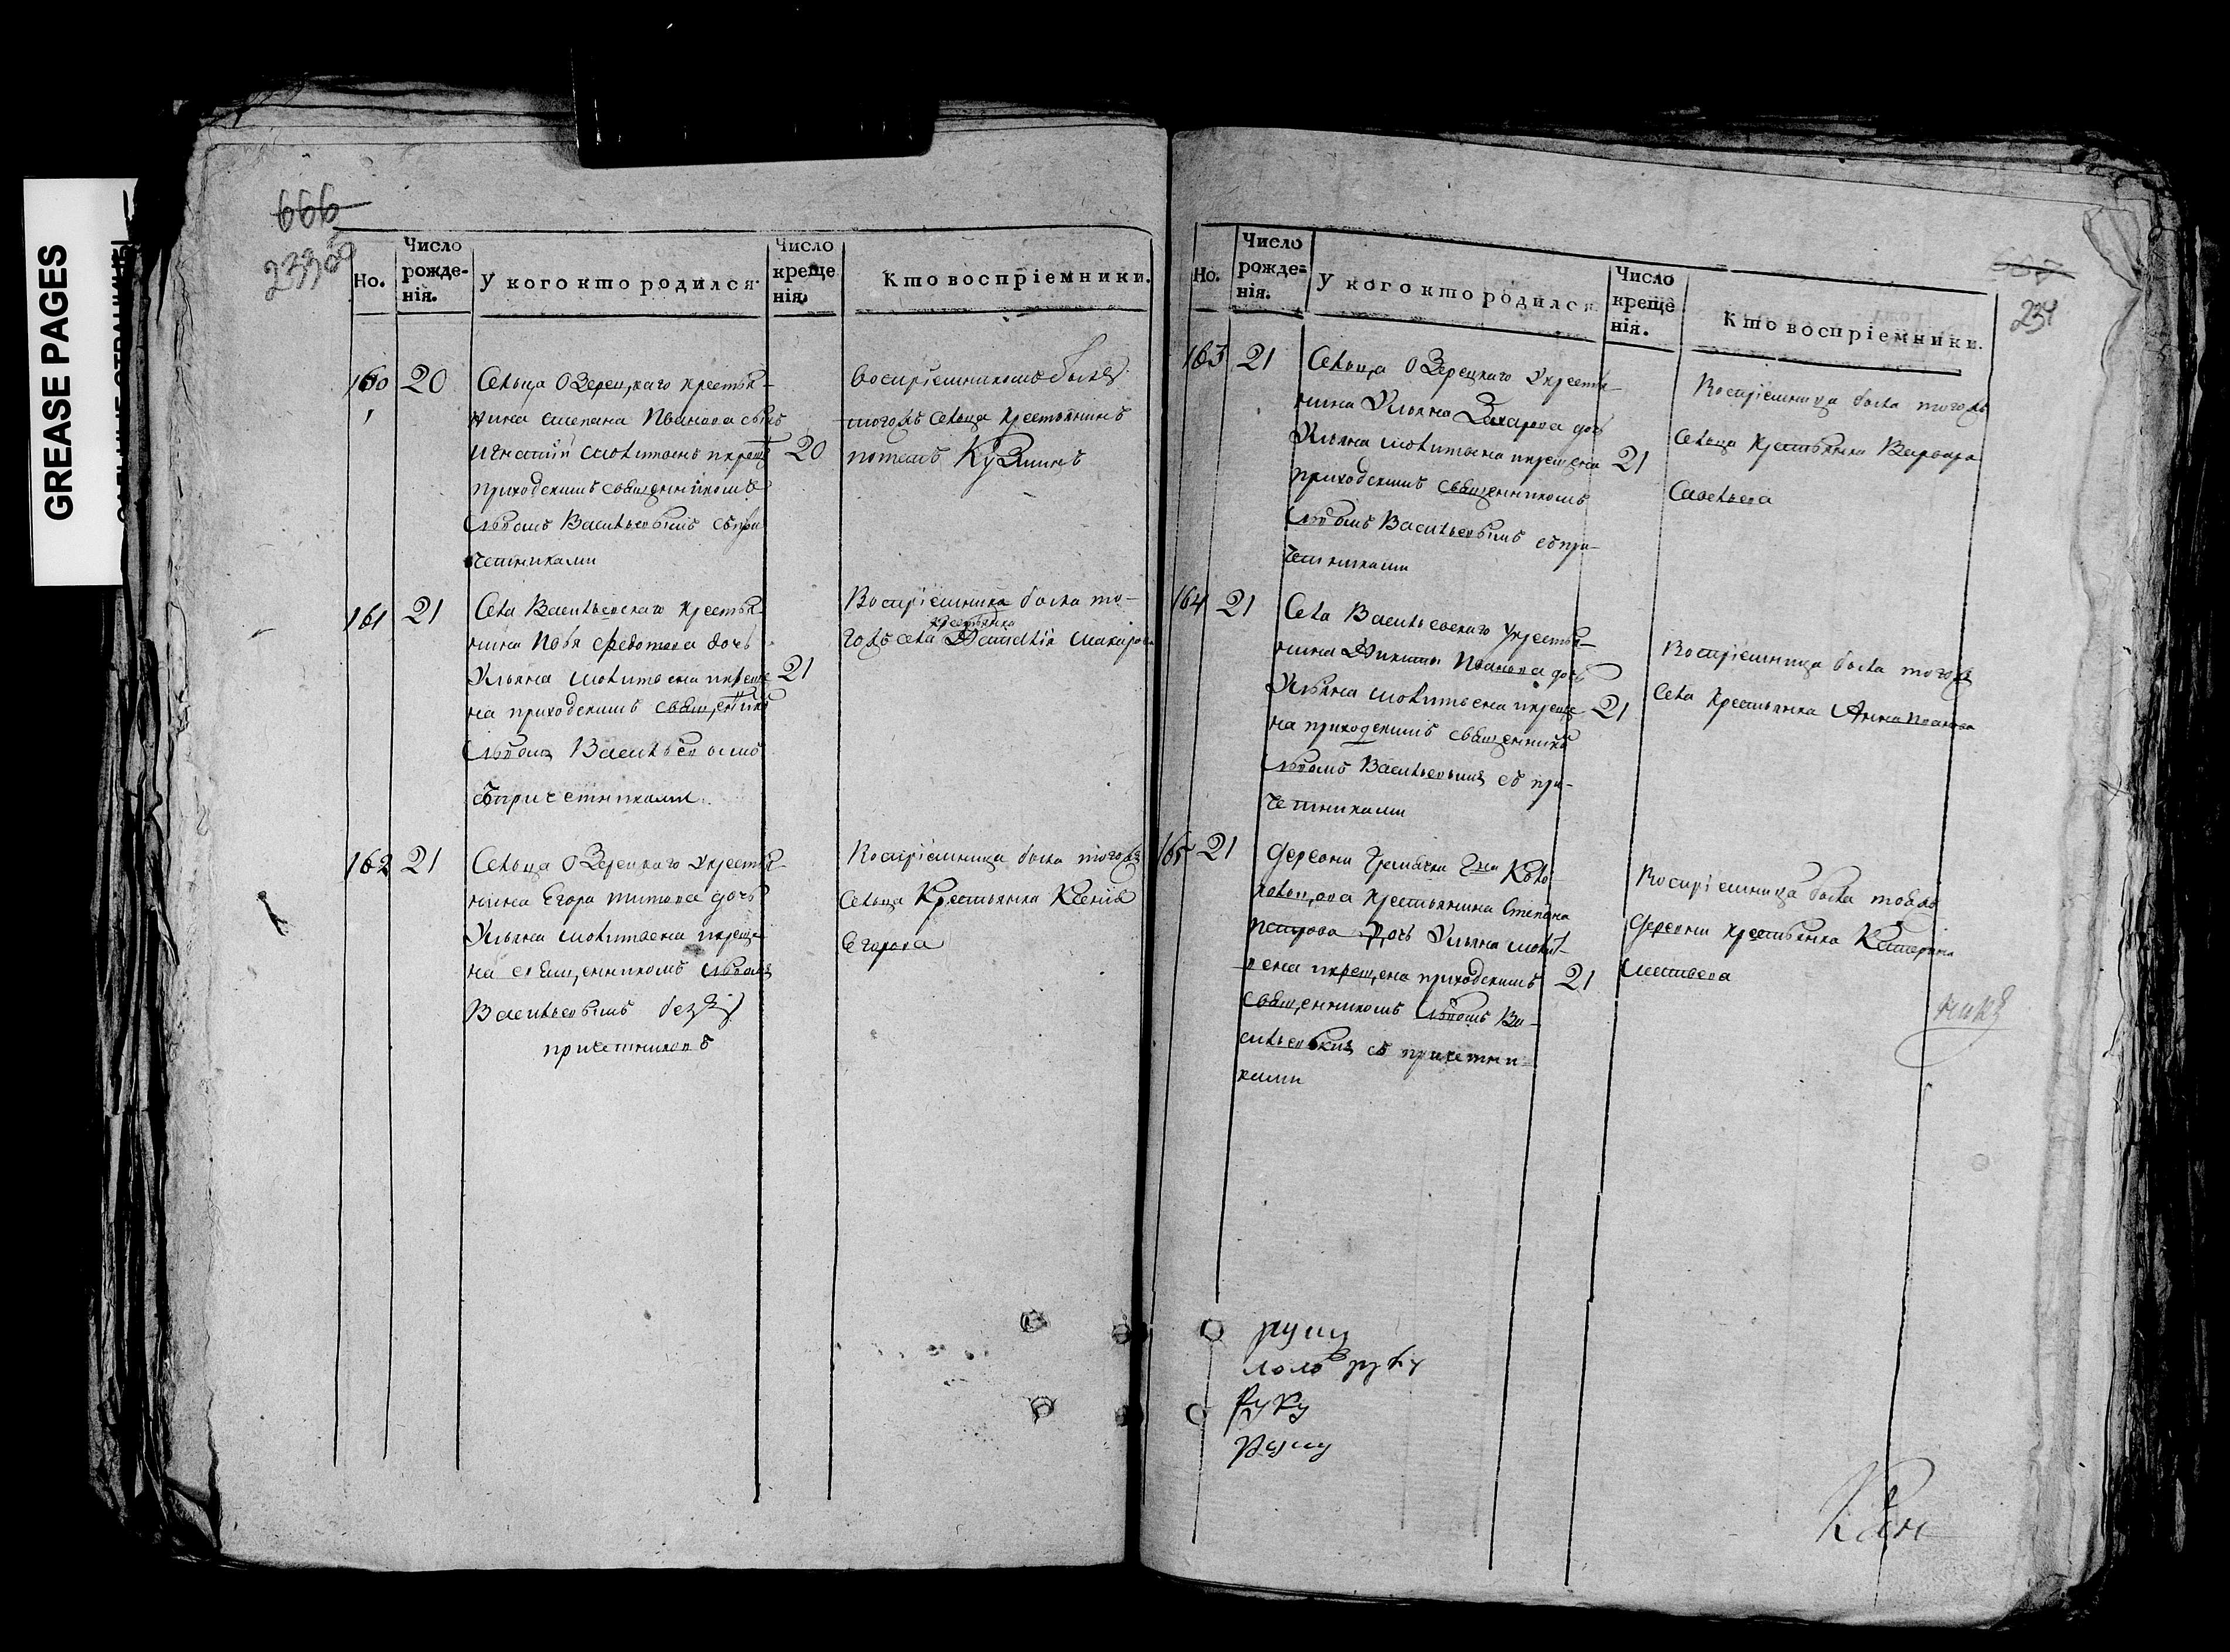 GREASE PAGES
666
Но.
Число рожде-нія.
У кого кто родился.
Число креще нія.
Кто воспріемники.
160 20 Сельца Озерецкаго крестья-
нина Степана Иванова сынъ
Игнатій молитвенъ и крещ 20
приходскимъ священникомъ
Львомъ Васильевымъ съ при
четниками
воспріемникомъ былъ
тогожъ сельца крестьянинъ
потапъ Кузминъ
161 21 Села Васильевскаго крестья-
нина Федотова дочь
Ульяна молитвена и креще 21
на приходскимъ священник
Львомъ Васильевымъ
съ причетниками
Воспріемница была то-
крестьянка
гожъ села Макарова
162 21 Сельца Озерецкаго у крестья-
нина Егора Титова дочь
Ульяна молитвена и креще
на священникомъ Львомъ
Васильевымъ безъ
причетниковъ
Воспріемница была тогожъ
Сельца Крестьянка Ксенія
Егорова
Но.
Число рожде=нія.
У кого кто родился
Число креще нія.
Кто воспріемники.
234
163 21 Сельца Озерецкаго у крестья-
нина Ульяна Захарова дочь
Ульяна молитвена и крещена 21
приходскимъ священникомъ
Львомъ Васильевымъ съ при-
четниками
Воспріемница была тогожъ
Сельца Крестьянка Варвара
Савельева
164 21 Села Васильевскаго у крестья-
нина Никиты Иванова дочь
Ульяна молитвена и креще 21
на приходскимъ священник
Львомъ Васильевымъ съ при-
четниками
Воспріемница была тогожъ
Села Крестьянка Анна Иванова
165 21 Деревни Гна Коло-
кольцова крестьянина Степана
Петрова дочь Ульяна молит-
вена и крещена приходскимъ 21
священникомъ Львомъ Ва-
сильевымъ съ причетни-
ками
Воспріемница была тояжъ
Деревни крестьянка Катерина
Матвеева
руку